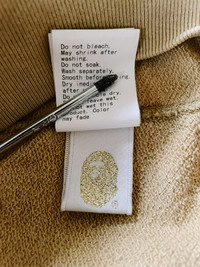 Do not bleach.
May shrink after
washing.
Do not soak.
Wash separately.
Smooth before
Dry
after
dry.
leave wet.
wet this
product. Color
may fade